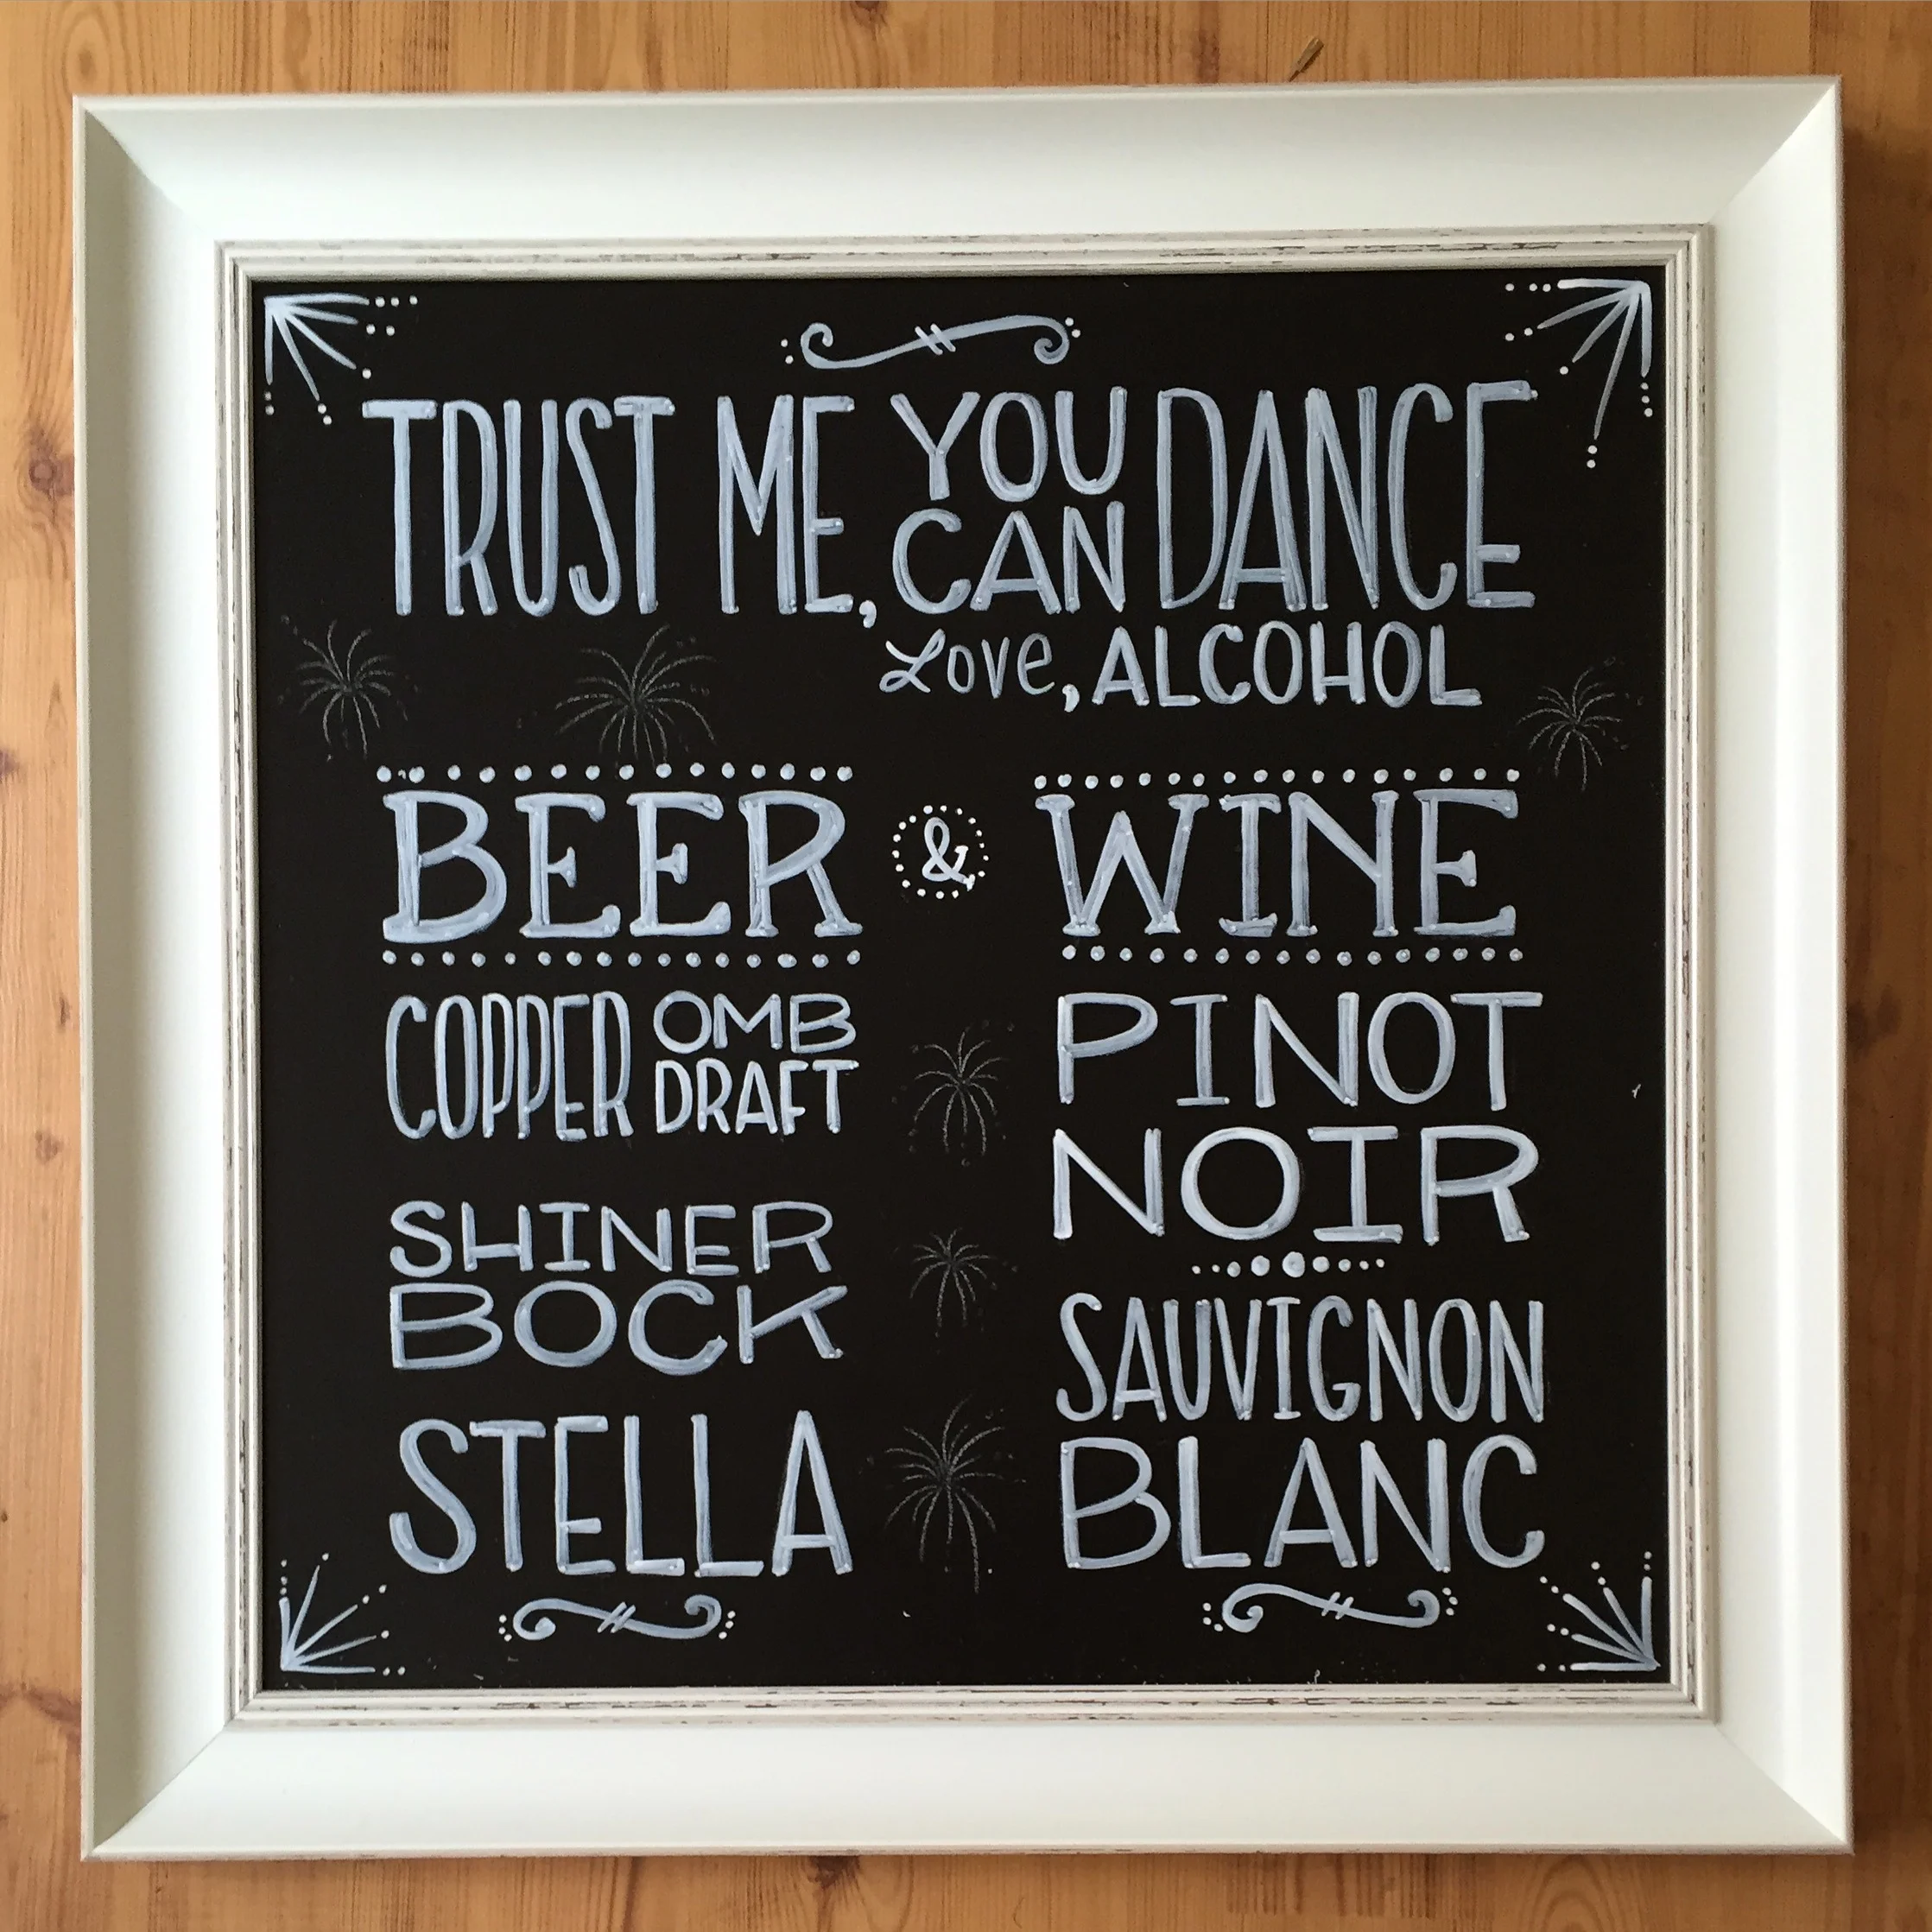 TRUST ME, YOU CAN DANCE
Love, ALCOHOL
BEER & WINE
COPPER OMB DRAFT
SHINER
BOCK
STELLA
PINOT
NOIR
SAUVIGNON
BLANC